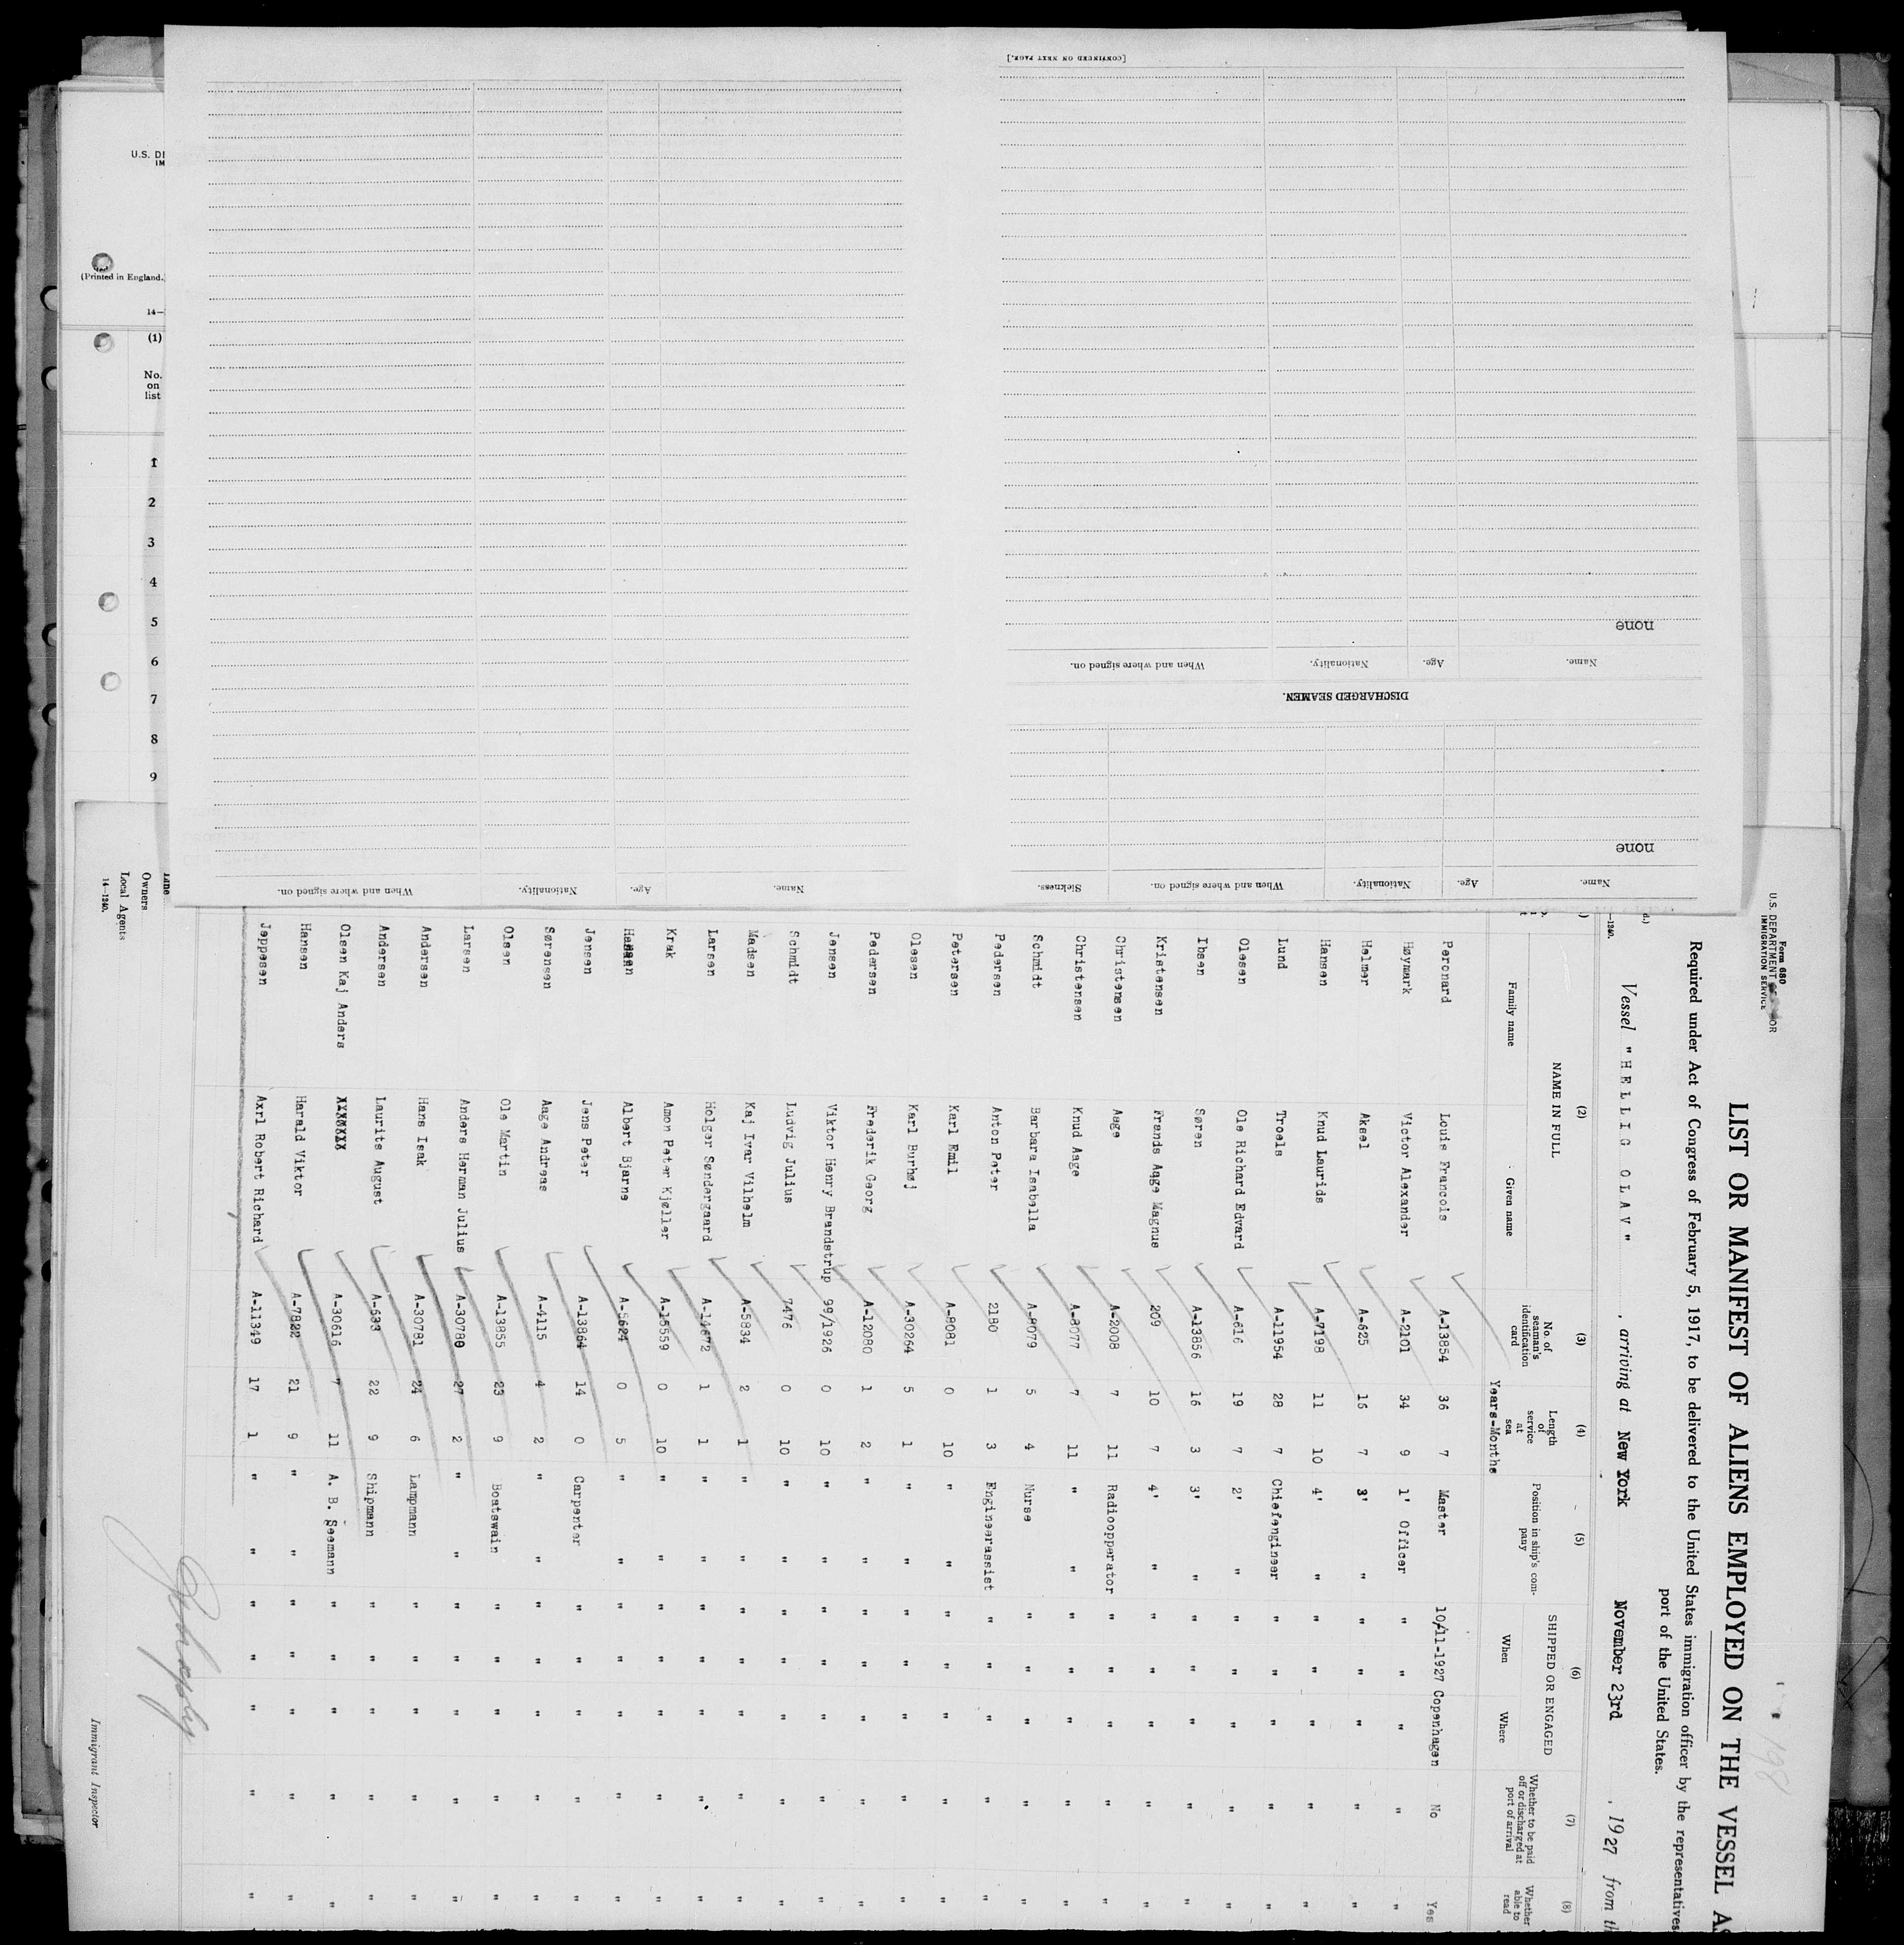 Form 680
U.S. DEPARTMENT OF LABOR
IMMIGRATION SERVICE
LIST OR MANIFEST OF ALIENS EMPLOYED ON THE VESSEL AS
Required under Act of Congress of February 5, 1917, to be delivered to the United States immigration officer by the representatives
port of the United States.
Vessel "HELLIG OLAV" , arriving at New York November 23rd , 1927 from th
(2) (3) (4) (5) (6) (7) (8)
NAME IN FULL No. of seaman's identification card Length of service at sea Position in ship's company SHIPPED OR ENGAGED Whether to be paid off or discharged at port of arrival Whether able to read
Family name Given name Years-Months When Where
Peronard Louis Francois A-13854 36 7 Master 10/11-1927 Copenhagen No Yes
Høymark Victor Alexander A-2101 34 9 1' Officer " " " " "
Helmer Aksel A-625 15 7 3' " " " " " "
Hansen Knud Laurids A-7198 11 10 4' " " " " " "
Lund Troels A-11954 28 7 Chiefengineer " " " " "
Olesen Ole Richard Edvard A-616 19 7 2' " " " " " "
Ibsen Søren A-13856 16 3 3' " " " " " "
Kristensen Frands Aage Magnus 2099 10 7 4' " " " " " "
Christensen Aage A-2008 7 11 Radiooperator " " " " "
Christensen Knud Aage A-3077 7 11 " " " " " " "
Schmidt Barbara Isabella A-8079 5 4 Nurse " " " " "
Pedersen Anton Peter 2180 1 3 Engineerassist " " " " "
Petersen Karl Emil A-8081 0 10 " " " " " " "
Olesen Karl Burhøj A-30264 5 1 " " " " " " "
Pedersen Frederik Georg A-12080 1 2 " " " " " " "
Jensen Viktor Henry Brandstrup 99/1926 0 10 " " " " " " "
Schmidt Ludvig Julius 7476 0 10 " " " " " " "
Madsen Kaj Ivar Vilhelm A-5834 2 1 " " " " " " "
Larsen Holger Søndergaard A-14672 1 1 " " " " " " "
Krak Amon Peter Kjøller A-15559 0 10 " " " " " " "
Hansen Albert Bjarne A-5624 0 5 " " " " " " "
Jensen Jens Peter A-13864 14 0 Carpenter " " " " "
Sørensen Aage Andreas A-4115 4 2 " " " " " " "
Olsen Ole Martin A-13855 23 9 Boatswain " " " " "
Larsen Anders Herman Julius A-30780 27 2 " " " " " " "
Andersen Hans Isak A-30781 24 6 Lampmann " " " " "
Andersen Laurits August A-633 22 9 Shipmann " " " " "
Olsen Kaj Anders XXXXXXX A-30616 7 11 A. B. Seemann " " " " "
Hansen Harald Viktor A-7822 21 9 " " " " " " "
Jeppesen Axrl Robert Richard A-11349 17 1 " " " " " " "
Immigrant Inspector
198
Line
Owners
Local Agents
14—1240.
Name. Age. Nationality. When and where signed on. Sickness.
none
DISCHARGED SEAMEN.
Name. Age. Nationality. When and where signed on.
none
[CONTINUED ON NEXT PAGE.]
Name. Age. Nationality. When and where signed on.
U.S. DE
IM
(Printed in England.)
14—
(1)
No.
on
list
1
2
3
4
5
6
7
8
9